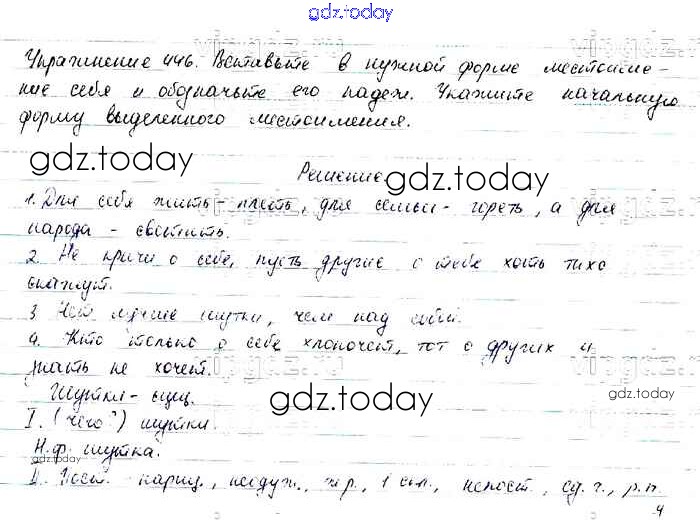 gdz.today
Упражнение 446. Вставьте в нужной форме местоиме-
ние себя и обозначьте его падеж. Укажите начальную
форму выделенного местоимения.
gdz.today
Решение
gdz.today
1. Для себя жить - тлеть, для семьи - гореть, а для
народа - светить.
2. Не кричи о себе, пусть другие о тебе хоть тихо
скажут.
3. Нет лучше шутки, чем над собой.
4. Кто только о себе хлопочет, тот о других и
знать не хочет.
Шутки - сущ.
gdz.today
gdz.today
I. (чего?) шутки.
Н.ф. шутка.
gdz.today
II. Пост. нариц., неодуш., ж.р., 1 скл., непост., ед.ч., р.п.
4